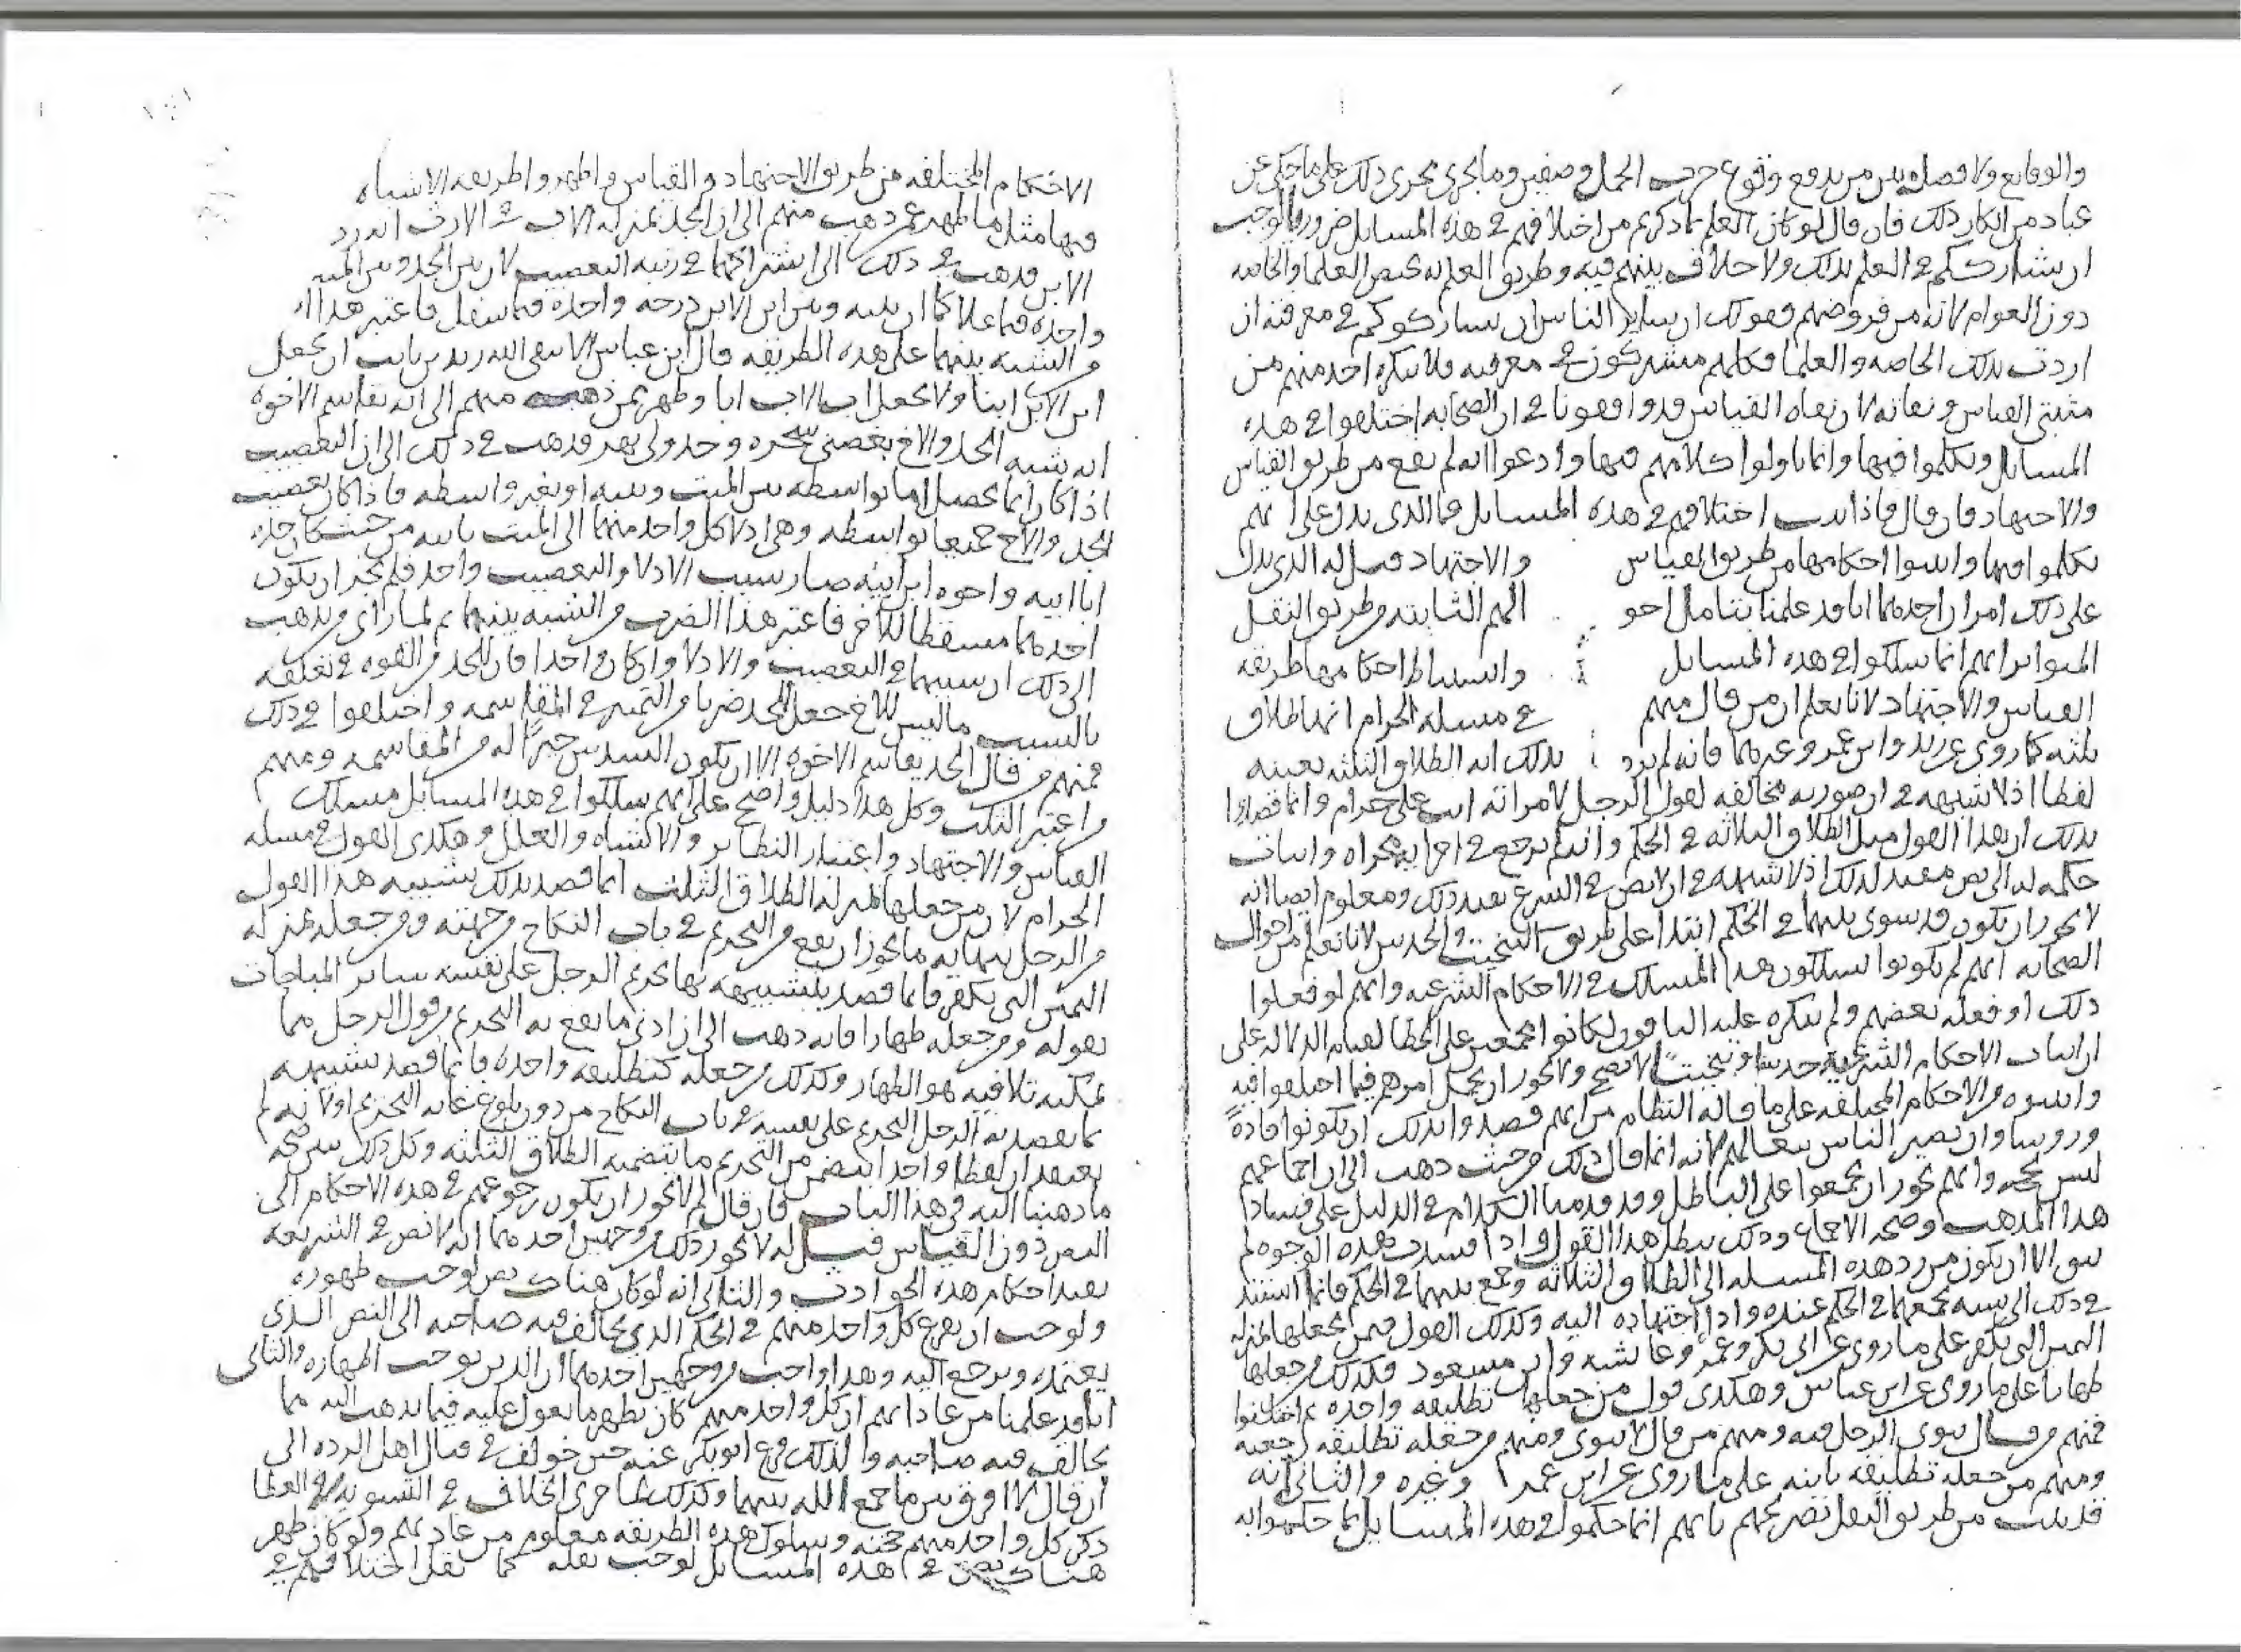 والوقايع ولا فصل بين من يدفع وقوع حرب الجمل وصفين وما يجري مجرى ذلك على ما حكي عن
عباد من انكار ذلك فان قال لو كان العلم بما ذكرتم من اختلافهم في هذه المسايل ضروريا لوجب
ان نشارككم في العلم بذلك ولا خلاف بينهم فيه وطريق العلم به يخص العلما والخاصه
دون العوام لانه من فروضهم فقولك ان ساير الناس ان يشاركوكم في معرفته ان
اردت بذلك الخاصه والعلما فكلهم مشتركون في معرفته فلا ينكره احد منهم من
مثبتي القياس ونفاته لان نفاه القياس قد وافقونا في ان الصحابه اختلفوا في هذه
المسايل وتكلموا فيها وانما تاولوا كلامهم فيها وادعوا انه لم يقع من طريق القياس
والاجتهاد فان قال فاذا ثبت اختلافهم في هذه المسايل فما الذي يدل على انهم
تكلموا فيها واثبتوا احكامها من طريق القياس والاجتهاد قيل له الذي يدل
على ذلك امران احدهما انا قد علمنا بتامل احوالهم الثابته من طريق النقل
المتواتر انهم انما سلكوا في هذه المسايل واستنباط احكامها طريقه
القياس والاجتهاد لانا نعلم ان من قال منهم في مسله الحرام انها طلاق
ثلثه كما روي عن زيد وابن عمر وغيرهما فانه لم يرد بذلك انه الطلاق الثلثه بعينه
لفظا اذ لا شبهه في ان صورته مخالفه لقول الرجل لامراته انت علي حرام وانما قصدوا
بذلك ان هذا القول مثل الطلاق الثلاثه في الحكم وانه لم يرجع في اجرايه مجراه واثبات
حكمه له الى نص مفيد لذلك اذ لا شبهه في ان لا نص في الشرع يفيد ذلك ومعلوم ايضا انه
لا يجوز ان يكون قد سوى بينهما في الحكم ابتدا على طريق التبخيت والحدس لانا نعلم من احوال
الصحابه انهم لم يكونوا يسلكون هذا المسلك في الاحكام الشرعيه وانهم لو فعلوا
ذلك او فعله بعضهم ولم ينكره عليه الباقون لكانوا مجمعين على الخطا لقيام الدلاله على
ان اثبات الاحكام الشرعيه حدسا وتبخيتا لا يصح ولا يجوز ان يحمل امرهم فيما اختلفوا فيه
واثبتوه من الاحكام المختلفه على ما قاله النظام من انهم قصدوا بذلك ان يكونوا قادة
وروسا وان يصير الناس تبعا لهم لانه انما قال ذلك من حيث ذهب الى ان اجماعهم
ليس بحجه وانهم يجوز ان يجمعوا على الباطل وقد قدمنا الكلام في الدليل على فساد
هذا المذهب وصحه الاجماع وذلك يبطل هذا القول واذا فسدت هذه الوجوه لم
يبق الا ان يكون من رد هذه المسله الى الطلاق الثلاثه وجمع بينهما في الحكم فانما استند
في ذلك الى شبه يجمعهما في الحكم عنده وادا اجتهاده اليه وكذلك القول فيمن يجعلها بمنزله
اليمين التي تكفر على ما روي عن ابي بكر وعمر وعايشه وابن مسعود فكذلك من جعلها
ظهارا على ما روي عن ابن عباس وهكذى قول من جعلها تطليقه واحده ثم اختلفوا
فمنهم من قال ينوي الرجل فيه ومنهم من قال لا ينوي ومنهم من جعله تطليقه رجعيه
ومنهم من جعله تطليقه باينه على ما روي عن ابن عمر وغيره والثاني انه
قد ثبت من طريق النقل تصريحهم بانهم انما حكموا في هذه المسايل بما حكموا به
الاحكام المختلفه من طريق الاجتهاد والقياس واظهروا طريقه الاشباه
فيها مثل ما ظهر عمن ذهب منهم الى ان الجد بمنزله الاب في الارث انه رد
الابن فذهب في ذلك الى اشتراكهما في رتبه التعصيب لان بين الجد وبين الميت
واحده فيما علا كما ان بينه وبين ابن الابن درجه واحده فيما سفل فاعتبر هذا
من الشبه بينهما على هذه الطريقه قال ابن عباس الا يتقي الله زيد بن ثابت ان يجعل
ابن الابن ابنا ولا يجعل اب الاب ابا وظهر عمن ذهب منهم الى انه يقاسم الاخوه
انه شبه الجد والاخ بغصني شجره وجدولي نهر فذهب في ذلك الى ان التعصيب
اذا كان انما يحصل اما بواسطه بين الميت وبينه او بغير واسطه فاذا كان تعصيب
الجد والاخ جميعا بواسطه وهي ادلا كل واحد منهما الى الميت بابيه من حيث كان جده
ابا ابيه واخوه ابن ابيه صار سبب الادلا والتعصيب واحد فلم يجز ان يكون
احدهما مسقطا للاخر فاعتبر هذا الضرب من الشبه بينهما ثم لما راى من يذهب
الى ذلك ان سببهما في التعصيب والادلا وان كان واحدا فان للجد من القوه في تعلقه
بالسبب ما ليس للاخ جعل للجد ضربا من التميز في المقاسمه واختلفوا في ذلك
فمنهم من قال الجد يقاسم الاخوه الا ان يكون السدس خيرا له من المقاسمه ومنهم
من اعتبر الثلث وكل هذا دليل واضح على انهم سلكوا في هذه المسايل مسلك
القياس والاجتهاد واعتبار النظاير والاشباه والعلل وهكذى القول في مسله
الحرام لان من جعلها بمنزله الطلاق الثلث انما قصد بذلك تشبيه هذا القول
من الرجل بنهايه ما يجوز ان يقع من التحريم في باب النكاح وحرمته ومن جعله بمنزله
اليمين التي تكفر فانما قصد بتشبيهه بها تحريم الرجل على نفسه ساير المباحات
بقوله ومن جعله ظهارا فانه ذهب الى ان ادنى ما يقع به التحريم من قول الرجل مما
يمكنه تلافيه هو الظهار وكذلك من جعله كتطليقه واحده فانما قصد تشبيهه
بما يقصد به الرجل التحريم على نفسه في باب النكاح من دون بلوغ غايه التحريم اولا نه لم
يعتقد ان لفظا واحدا يتضمن من التحريم ما يتضمنه الطلاق الثلثه وكل ذلك يبين صحه
ما ذهبنا اليه في هذا الباب فان قال لم لا يجوز ان يكون رجوعهم في هذه الاحكام الى
النص دون القياس قيل له لا يجوز ذلك من وجهين احدهما انه لا نص في الشريعه
يفيد احكام هذه الحوادث والثاني انه لو كان هناك نص لوجب ظهوره
ولوجب ان يفزع كل واحد منهم في الحكم الذي يخالف فيه صاحبه الى النص الذي
يعتمده ويرجع اليه وهذا واجب من وجهين احدهما ان الدين يوجب اظهاره والثاني
انا قد علمنا من عاداتهم ان كل واحد منهم كان يظهر ما يعول عليه فيما يذهب اليه مما
يخالف فيه صاحبه ولذلك فزع ابو بكر عند حين خولف في قتال اهل الرده الى
ان قال لا افرق بين ما جمع الله بينهما وكذلك لما جرى الخلاف في التسويه في العطا
ذكر كل واحد منهم حجته وسلوك هذه الطريقه معلوم من عاداتهم ولو كان ظهر
هناك نص في هذه المسايل لوجب نقله كما نقل اختلافهم في